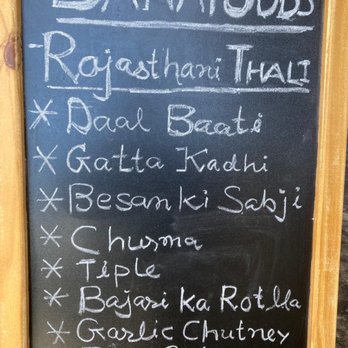 Rajasthani THALI
* Daal Baati
* Gatta Kadhi
* Besan ki Sabji
* Churma
* Tiple
* Bajari ka Rotlla
* Garlic Chutney